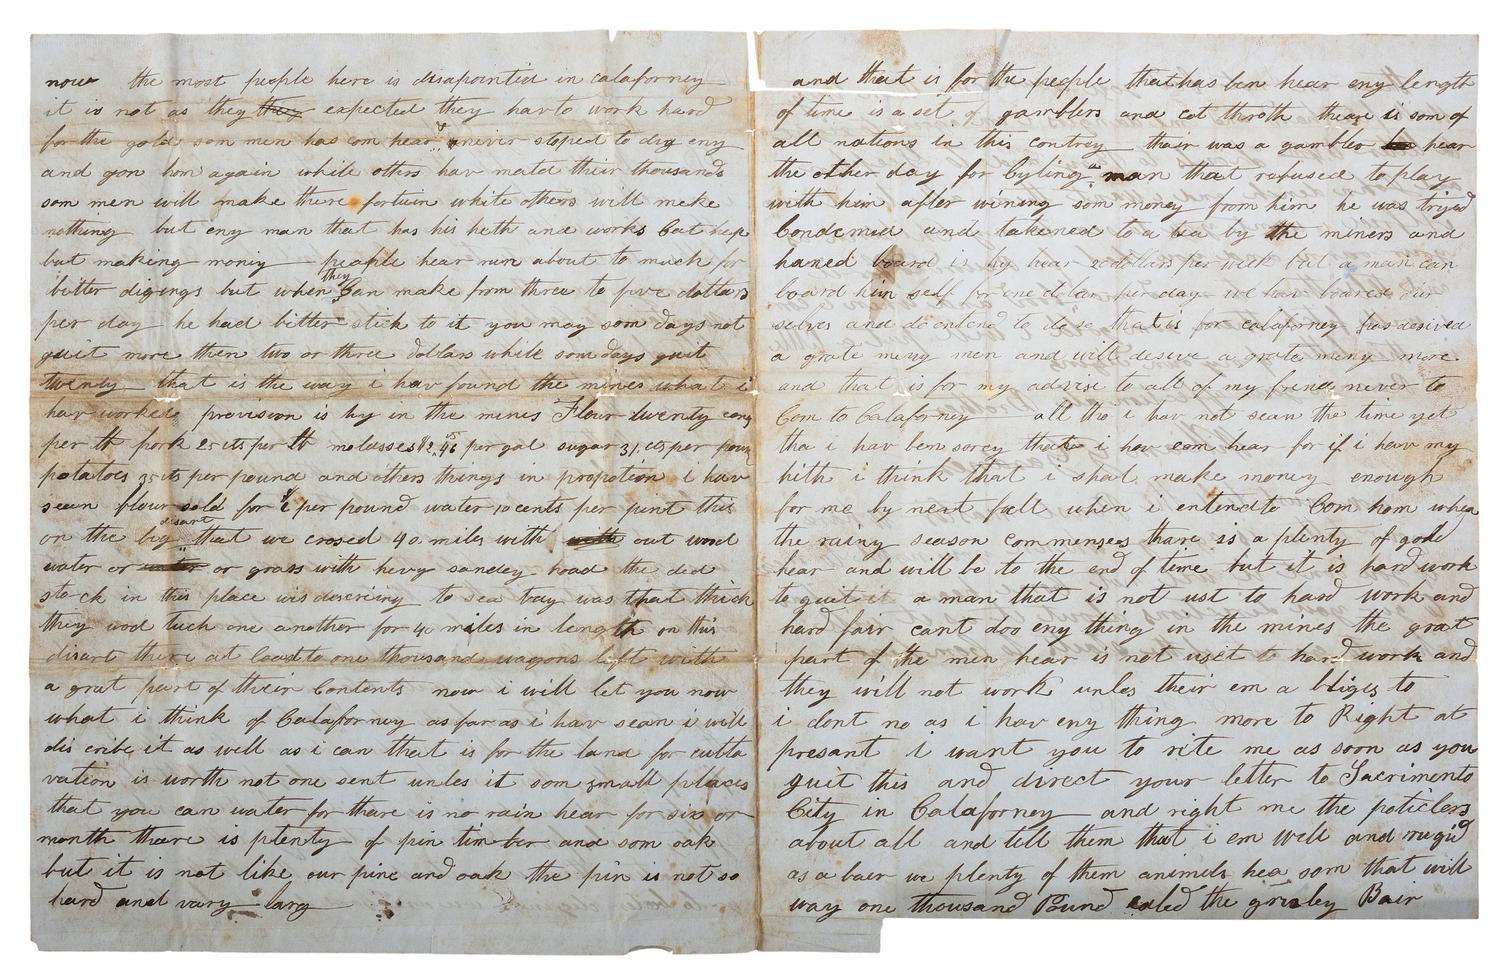 now the most people here is disapointid in calaforney
it is not as they they expected they hav to work hard
for the gold som men has com hear & never stoped to dig eny
and gon hom again while others hav mated their thousands
som men will make there fortuin white others will meke
nothing but eny man that has his helth and works cat help
but making money people hear run about to much for
bitter digings but when they can make from three to five dollars
per day he had bitter stick to it you may som days not
guit more then two or three dollars while som days guit
twenty that is the way i hav found the mines what i
hav worked provision is hy in the mines Flour twenty cen
per lb pork 25 cts per lb molusses $2,45 per gal sugar 31 cts per poun
potatoes 35 cts per pound and others things in propotion i hav
seen flour sold for $1 per pound water 10 cents per pint this
on the big disart that we crosed 40 miles with with out wood
water or water or grass with hevy sandey road the ded
stock in this place wis descriny to sea tray was that thick
they wod tuch one another for 40 miles in length on this
disart there at least to one thousand wagons left with
a grat part of their Contents now i will let you now
what i think of Calaforney as far as i hav sean i will
discribe it as well as i can that is for the land for cutta
vation is worth not one sent unles it som small places
that you can water for thare is no rain hear for six or
month thare is plenty of pin timber and som oak
but it is not like our pine and oak the pin is not so
hard and vary larg
and that is for the people that has ben hear eny length
of time is a set of gamblers and cot throth theare is som of
all nations in this contrey thair was a gambler hear
the other day for byling a man that refused to play
with him after wining som money from him he was tryed
Condemid and takened to a tea by the miners and
haned board is hy hear 20 dollars per week but a man can
board him self for one dolar per day we hav boared our
selves and do entend to do so that is for calaforney has desived
a grate meny men and will desive a grate meny more
and that is for my advise to all of my frend never to
Com to Calaforney all tho i hav not sean the time yet
tha i hav ben sorey that i hav com hear for if i hav my
hilth i think that i shal make money enough
for me by next fall when i entend to Com hom when
the rainy season commenses thare is a plenty of gold
hear and will be to the end of time but it is hard work
to guit it a man that is not ust to hard work and
hard fair cant doo eny thing in the mines the grat
part of the men hear is not uset to hard work and
they will not work unles their em a bliges to
i dont no as i hav eny thing more to Right at
presant i want you to rite me as soon as you
guit this and direct your letter to Sacrimento
City in Calaforney and right me the poticlers
about all and tell them that i em well and rugid
as a baer we plenty of them animels hea som that will
way one thousand Pound caled the grisley Bair